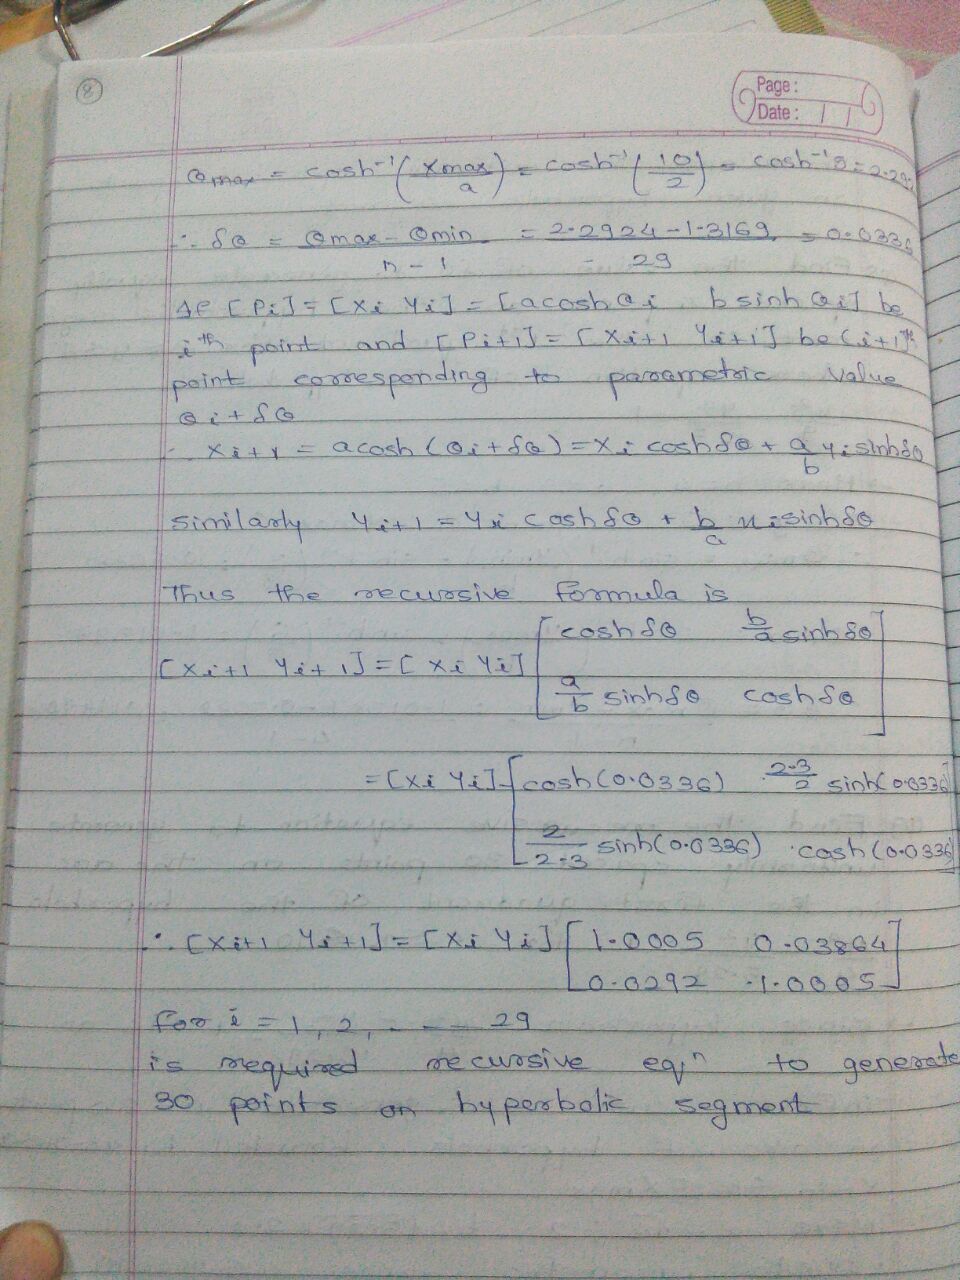 8
Page :
Date : / /
θmax = cosh⁻¹(xmax/a) = cosh⁻¹(10/2) = cosh⁻¹5 = 2.29
∴ δθ = θmax - θmin / n - 1 = 2.2924 - 1.3169 / 29 = 0.0336
If [Pi] = [xi yi] = [a cosh θi b sinh θi] be
ith point and [Pi+1] = [xi+1 yi+1] be (i+1)th
point corresponding to parametric value
θi + δθ
xi+1 = a cosh (θi + δθ) = xi cosh δθ + a/b yi sinh δθ
similarly yi+1 = yi cosh δθ + b/a xi sinh δθ
Thus the recursive formula is
[xi+1 yi+1] = [xi yi] [cosh δθ b/a sinh δθ
a/b sinh δθ cosh δθ]
= [xi yi] [cosh(0.0336) 2.3/2 sinh(0.0336)
2/2.3 sinh(0.0336) cosh(0.0336)]
∴ [xi+1 yi+1] = [xi yi] [1.0005 0.03864
0.0292 1.0005]
for i = 1, 2, - - - 29
is required recursive eqn to generate
30 points on hyperbolic segment